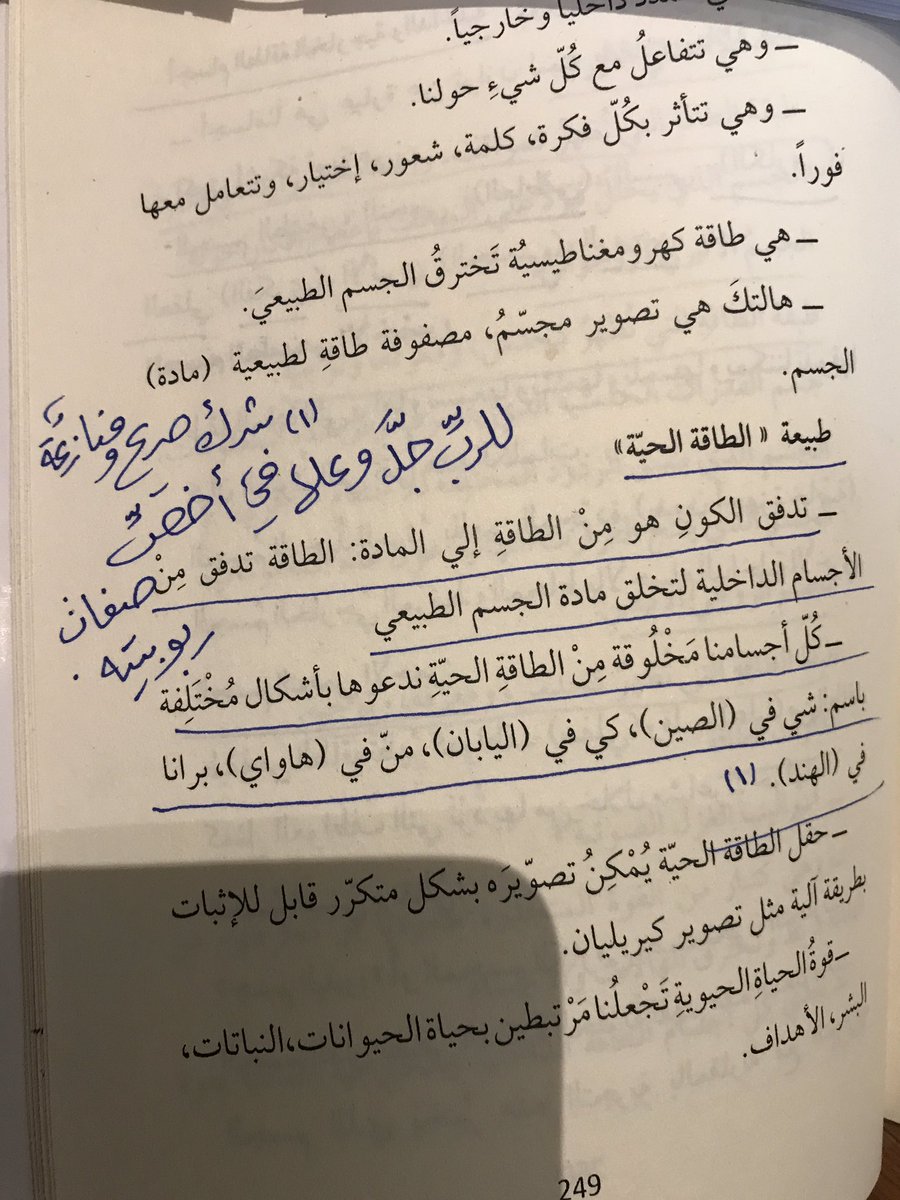 داخلياً وخارجياً.
– وهي تتفاعلُ مع كُلّ شيءِ حولنا.
– وهي تتأثر بكُلّ فكرة، كلمة، شعور، إختيار، وتتعامل معها
فوراً.
– هي طاقة كهرومغناطيسيُة تَخترقُ الجسم الطبيعيَ.
– هالتكَ هي تصوير مجسّمُ، مصفوفة طاقةِ لطبيعية (مادة)
الجسم.
طبيعة « الطاقة الحيّة»
(١) شرك صريح ومنازعةٌ
للربِّ جلَّ وعلا في أخصِّ
صفات
ربوبيته.
– تدفق الكونِ هو مِنْ الطاقةِ إلي المادة: الطاقة تدفق مِنْ
الأجسام الداخلية لتخلق مادة الجسم الطبيعي
– كُلّ أجسامنا مَخْلُوقة مِنْ الطاقةِ الحيّةِ ندعوها بأشكال مُخْتَلِفة
باسم: شي في (الصين)، كي في (اليابان)، منّ في (هاواي)، برانا
في (الهند). (١)
– حقل الطاقة الحيّة يُمْكِنُ تصوّيرَه بشكل متكرّر قابل للإثبات
بطريقة آلية مثل تصوير كيريليان.
– قوةُ الحياةِ الحيويةِ تَجْعلُنا مَرْتبطين بحياة الحيوانات، النباتات،
البشر، الأهداف.
249